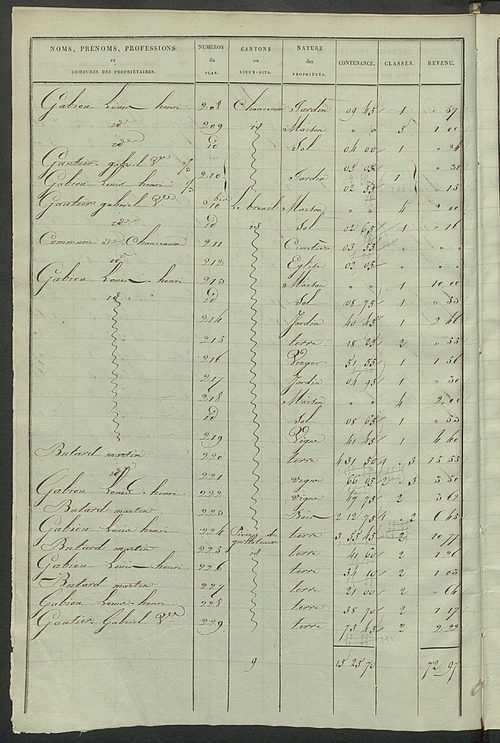 NOMS, PRÉNOMS, PROFESSIONS ET DEMEURES DES PROPRIÉTAIRES. NUMÉROS du PLAN. CANTONS ou LIEUX-DITS. NATURE des PROPRIÉTÉS. CONTENANCE. CLASSES. REVENU.
Gabiou Louis henri 208 Chanceaux Jardin 09 45 1 " 57
id 209 id Maison " " 5 1 00
id id Sol 04 00 1 " 24
Gautier gabriel 1/2 05 05 " 31
210 Jardin 1
Gabiou Louis henri 1/2 02 55 " 15
Gautier gabriel 210 bis Le breuil Maison " " 4 2 00
id id id Sol 02 65 1 " 16
Commune de Chanceaux 211 Cimetière 03 55 " "
id 212 Eglise 02 05 " "
Gabiou Louis henri 213 Maison " " 1 10 00
id id Sol 08 75 1 " 53
214 Jardin 40 45 1 2 46
215 terre 18 25 2 " 55
216 Verger 51 55 1 1 56
217 Jardin 04 95 1 " 30
218 Maison " " 4 2 00
id Sol 08 65 1 " 53
219 Vigne 41 45 1 4 40
Butard martin 220 terre 4 31 50 1. 3 15 55
id 221 vigne 66 05 2. 3 3 50
Gabiou Louis henri 222 vigne 49 75 2 3 62
Butard martin 223 Bois 2 12 75 1. 2 6 45
Gabiou Louis henri 224 Pièces de terre 3 55 45 2 10 77
Butard martin 225 id terre 41 60 2 1 26
Gabiou Louis henri 226 terre 34 10 2 1 03
Butard martin 227 terre 21 00 2 " 64
Gabiou Louis henri 228 terre 38 70 2 1 17
Gautier Gabriel 229 terre 73 45 2 2 22
9 15 25 70 72 97